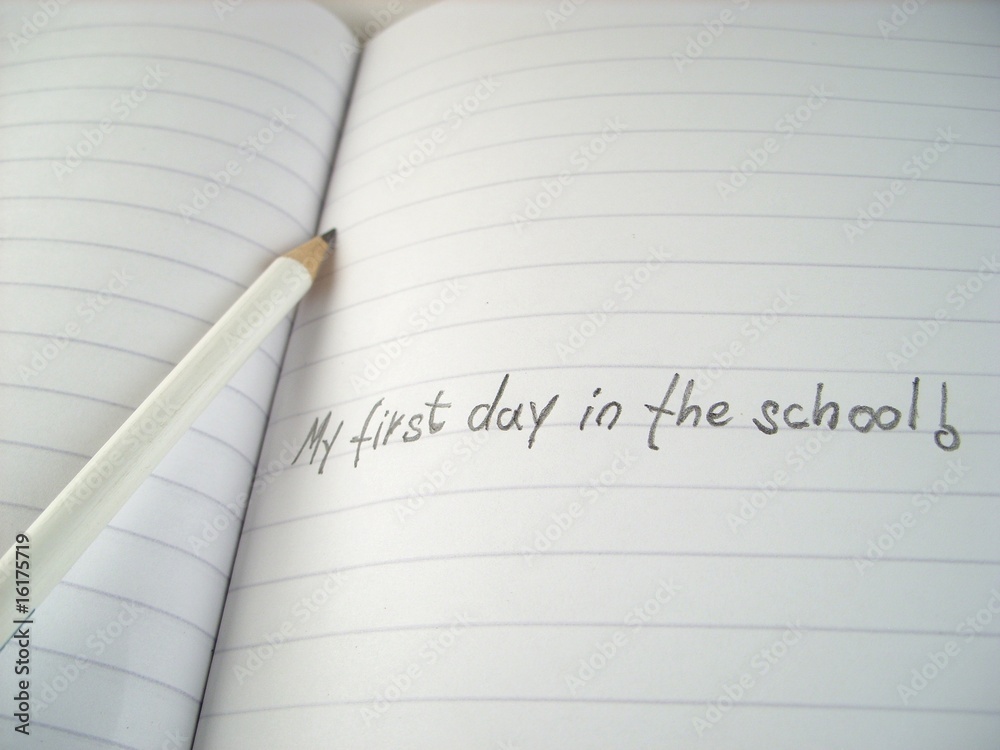 My first day in the school!
Adobe Stock | #16175719